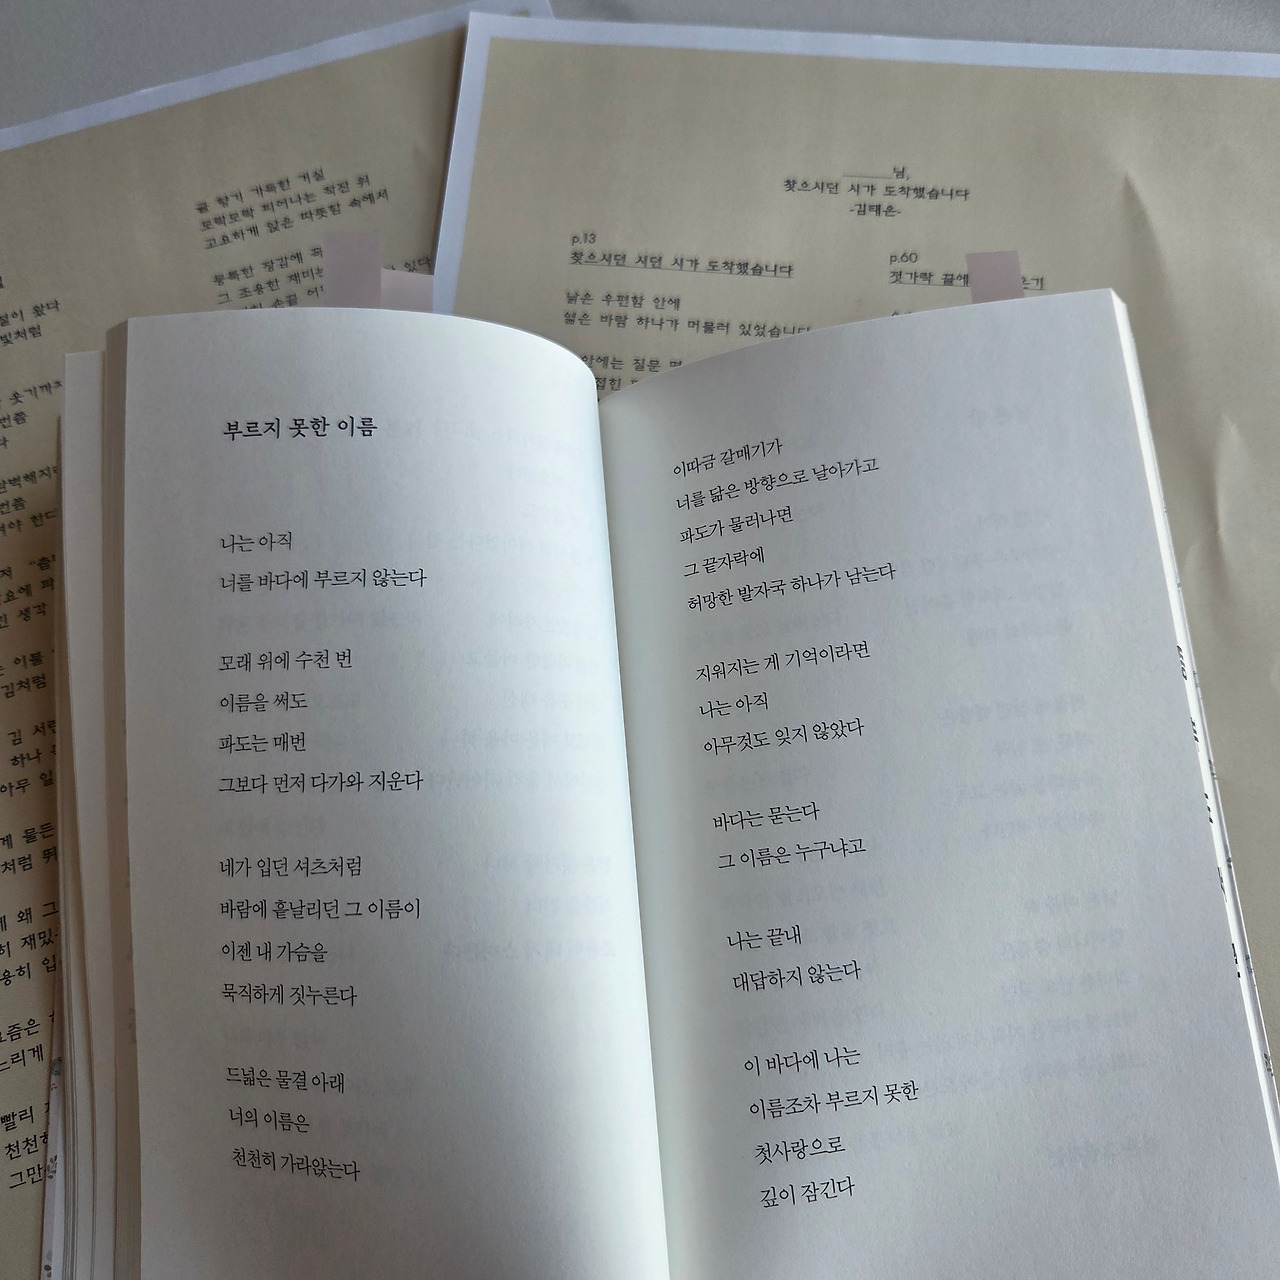 글 향기 가득한 거실
모락모락 피어나는 찻잔 위
고요하게 앉은 따뜻함 속에서
뭉툭한 장갑에
그 조용한 재미는
있다
손끝
절이 왔다
빛처럼
번쯤
번쯤
져야 한다
긴 생각
이불
김처럼
김 서린
하나
아무 일
게 물든
처럼
왜 그
히 재밌
용히 입
요즘은
느리게
빨리
천천히
그만
______님,
찾으시던 시가 도착했습니다
-김태은-
p.13
찾으시던 시던 시가 도착했습니다
낡은 우편함 안에
엷은 바람 하나가 머물러 있었습니다
안에는 질문
접힌
p.60
젓가락 끝에
부르지 못한 이름
나는 아직
너를 바다에 부르지 않는다
모래 위에 수천 번
이름을 써도
파도는 매번
그보다 먼저 다가와 지운다
네가 입던 셔츠처럼
바람에 흩날리던 그 이름이
이젠 내 가슴을
묵직하게 짓누른다
드넓은 물결 아래
너의 이름은
천천히 가라앉는다
이따금 갈매기가
너를 닮은 방향으로 날아가고
파도가 물러나면
그 끝자락에
허망한 발자국 하나가 남는다
지워지는 게 기억이라면
나는 아직
아무것도 잊지 않았다
바다는 묻는다
그 이름은 누구냐고
나는 끝내
대답하지 않는다
이 바다에 나는
이름조차 부르지 못한
첫사랑으로
깊이 잠긴다